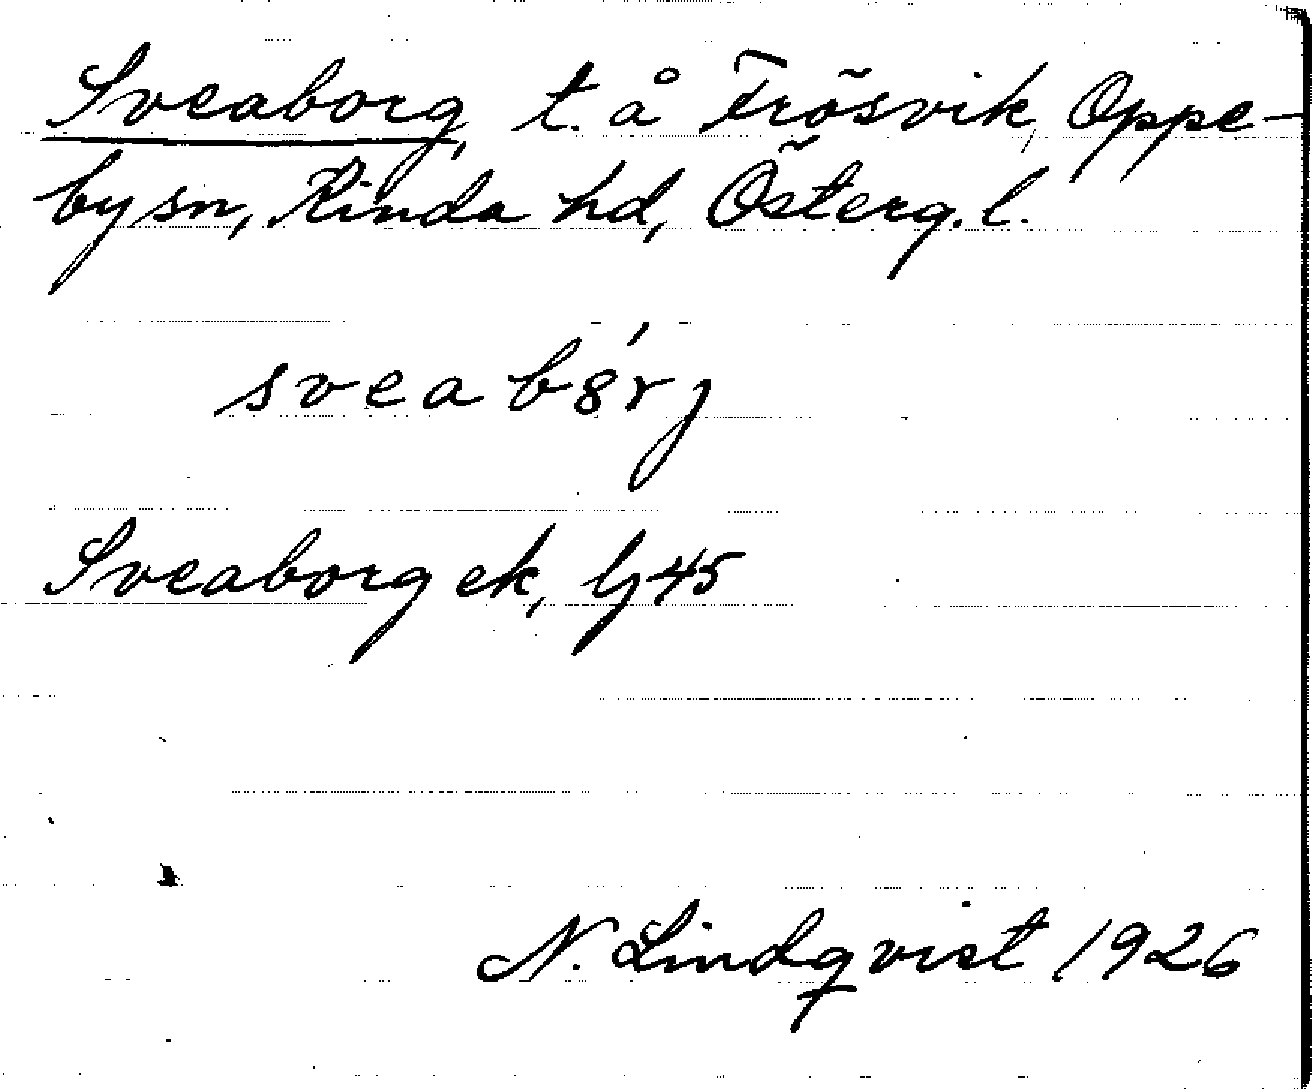 Sveaborg, t. å Frösvik, Oppe-
by sn, Kinda hd, Österg. l.
sveabo̯rj
Sveaborg ek, lj 45
N. Lindqvist 1926